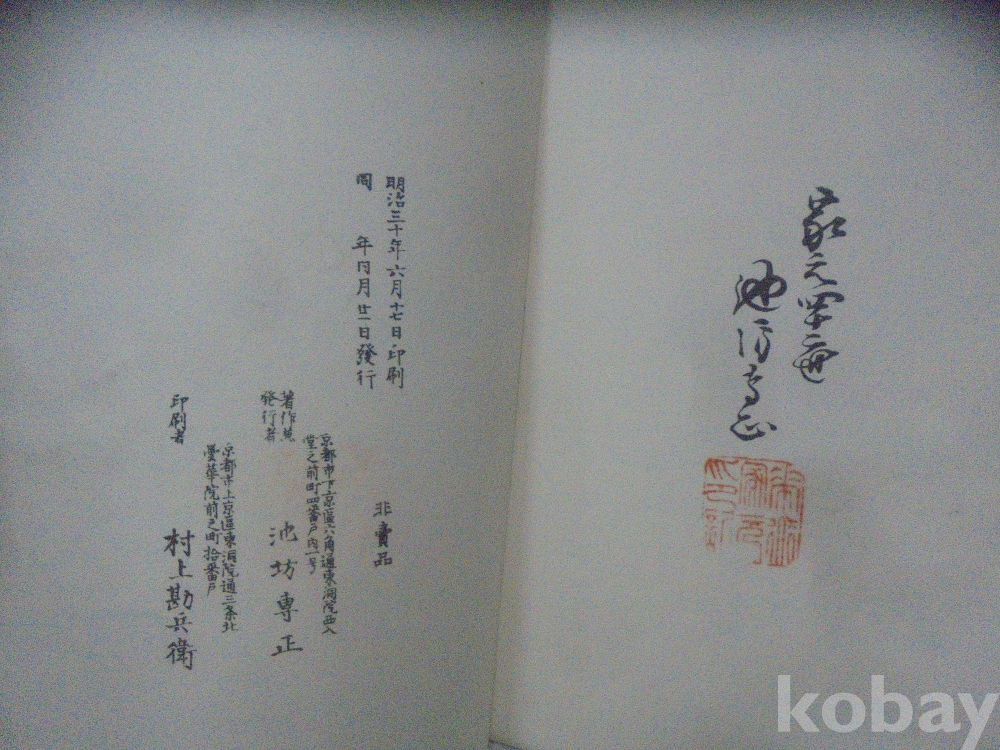 家元四十二世
池坊専正
明治三十年六月十七日印刷
同年同月廿一日發行
非賣品
京都市下京區六角通東洞院西入
堂之前町四番戸内一号
著作兼
發行者
池坊專正
京都市上京區東洞院通三条北
曇華院前之町拾番戸
印刷者
村上勘兵衛
kobay